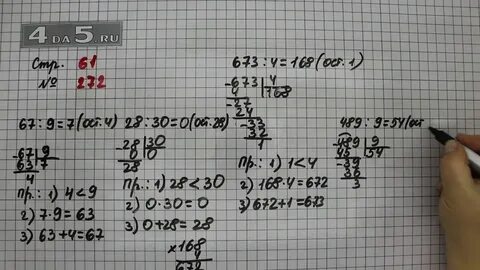 4DA5.RU
Стр. 61
№ 272
67 : 9 = 7 (ост. 4)
-67 | 9
63 | 7
4
Пр.: 1) 4 < 9
2) 7·9 = 63
3) 63+4=67
28 : 30 = 0 (ост. 28)
-28 | 30
0 | 0
28
Пр.: 1) 28 < 30
2) 0·30 = 0
3) 0+28 = 28
673 : 4 = 168 (ост. 1)
-673 | 4
4 | 168
-27
24
-33
32
1
Пр.: 1) 1 < 4
2) 168·4 = 672
3) 672+1=673
×168
4
672
489 : 9 = 54 (ост
-489 | 9
45 | 54
-39
36
3